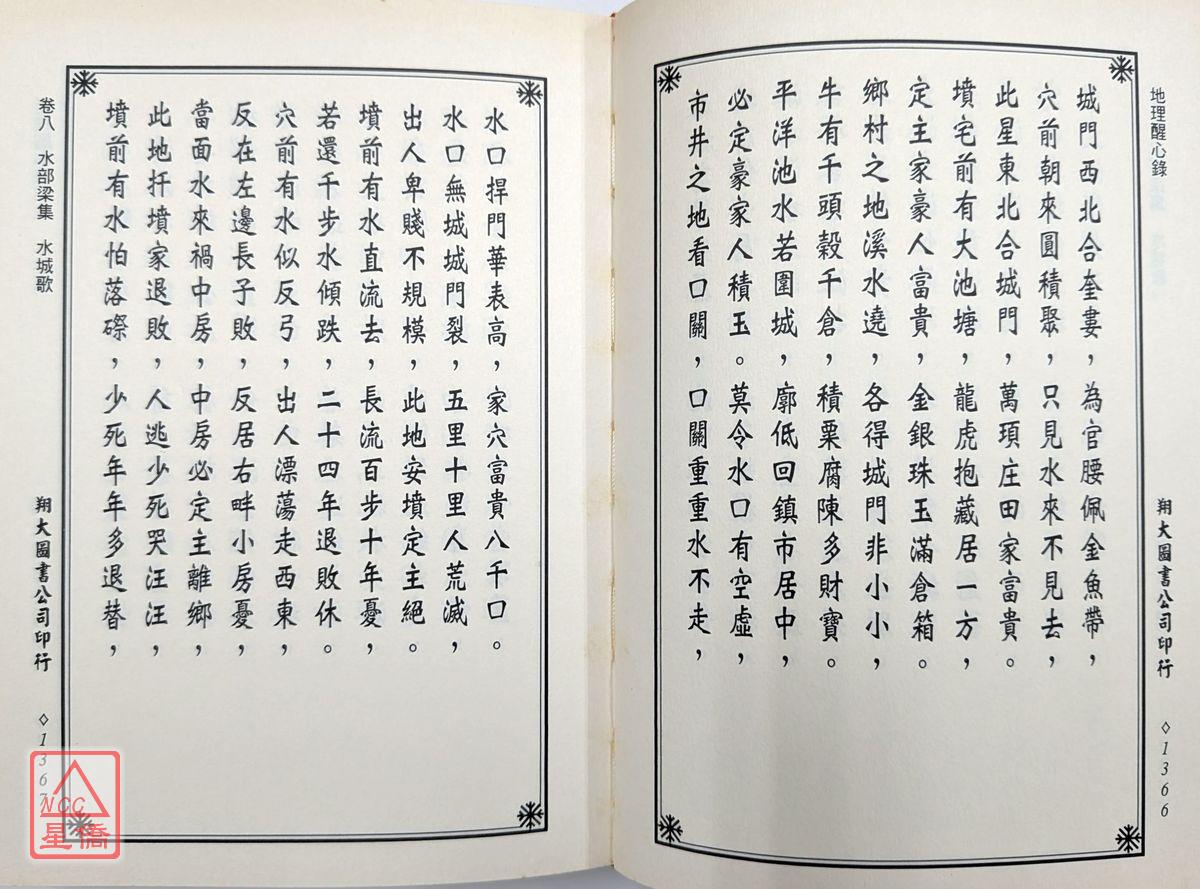 地理醒心錄
城門西北合奎婁，為官腰佩金魚帶，
穴前朝來圓積聚，只見水來不見去，
此星東北合城門，萬頊庄田家富貴。
墳宅前有大池塘，龍虎抱藏居一方，
定主家豪人富貴，金銀珠玉滿倉箱。
鄉村之地溪水遶，各得城門非小小，
牛有千頭穀千倉，積粟腐陳多財寶。
平洋池水若圍城，廓低回鎮市居中，
必定豪家人積玉。莫令水口有空虛，
市井之地看口關，口關重重水不走，
翔大圖書公司印行
◇1366
水口捍門華表高，家穴富貴八千口。
水口無城城門裂，五里十里人荒滅，
出人卑賤不規模，此地安墳定主絕。
墳前有水直流去，長流百步十年憂，
若還千步水傾跌，二十四年退敗休。
穴前有水似反弓，出人漂蕩走西東，
反在左邊長子敗，反居右畔小房憂，
當面水來禍中房，中房必定主離鄉，
此地扞墳家退敗，人逃少死哭汪汪，
墳前有水怕落磜，少死年年多退替，
卷八　水部梁集　水城歌
翔大圖書公司印行
◇1367
NCC
星僑